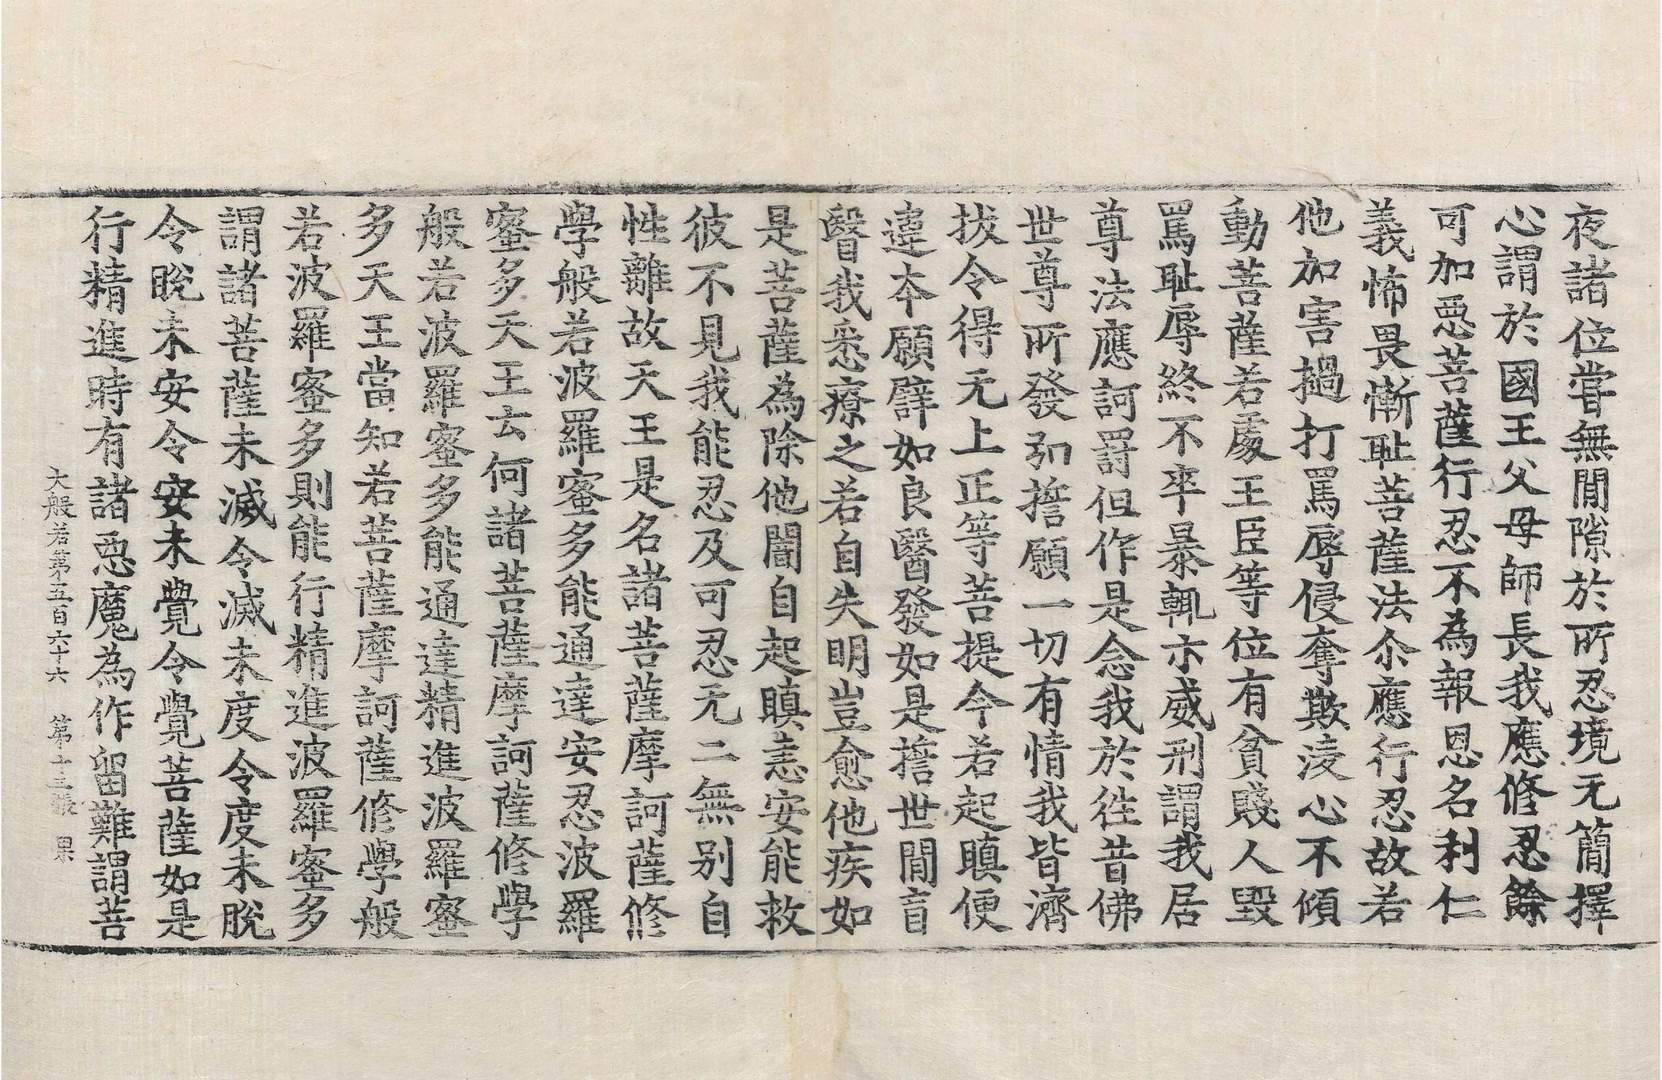 夜諸位嘗無閒隙於所忍境无簡擇
心謂於國王父母師長我應修忍餘
可加惡菩薩行忍不為報恩名利仁
義怖畏慚耻菩薩法尒應行忍故若
他加害撾打罵辱侵奪欺淩心不傾
動菩薩若處王臣等位有貧賤人毀
罵耻辱終不卒暴輒示威刑謂我居
尊法應訶罸但作是念我於往昔佛
世尊所發弘誓願一切有情我皆濟
拔令得无上正等菩提今若起瞋便
違本願譬如良醫發如是誓世閒盲
瞖我悉療之若自失明豈愈他疾如
是菩薩為除他闇自起瞋恚安能救
彼不見我能忍及可忍无二無别自
性離故天王是名諸菩薩摩訶薩修
學般若波羅蜜多能通達安忍波羅
蜜多天王云何諸菩薩摩訶薩修學
般若波羅蜜多能通達精進波羅蜜
多天王當知若菩薩摩訶薩修學般
若波羅蜜多則能行精進波羅蜜多
謂諸菩薩未滅令滅未度令度未脫
令脫未安令安未覺令覺菩薩如是
行精進時有諸惡魔為作留難謂菩
大般若第五百六十六 第十三張 果